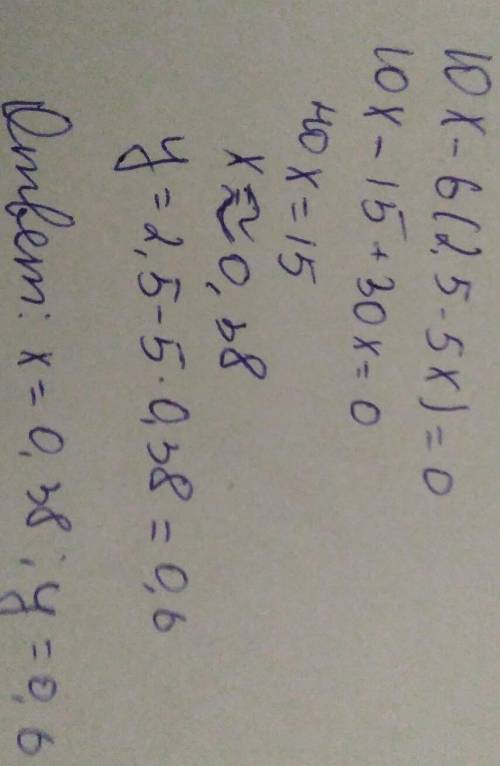 10x - 6(2,5 - 5x) = 0
10x - 15 + 30x = 0
40x = 15
x ≈ 0,38
y = 2,5 - 5 · 0,38 = 0,6
Ответ: x = 0,38 ; y = 0,6